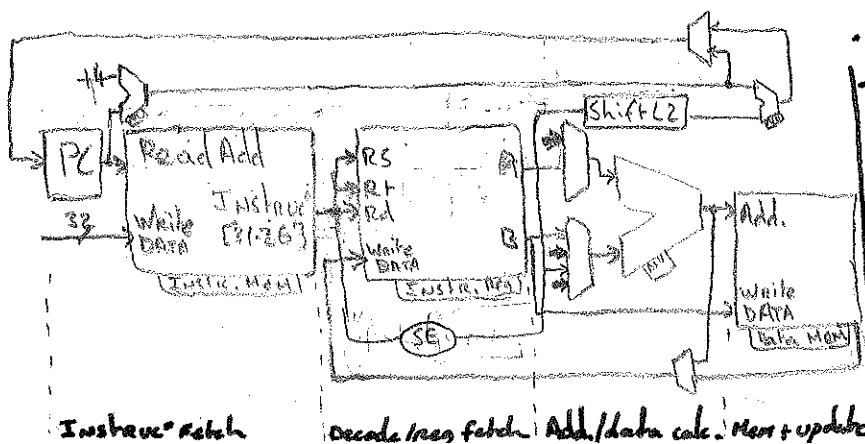 +4
Shift L2
PC
Read Add
Instruc
[31-26]
32
Write
DATA
Instr. Mem
Rs
Rt
Rd
Write
DATA
A
B
Instr. Reg
SE
ALU
Add.
Write
DATA
Data Mem
Instruc° Fetch
Decode/reg fetch
Add./data calc.
Mem + update